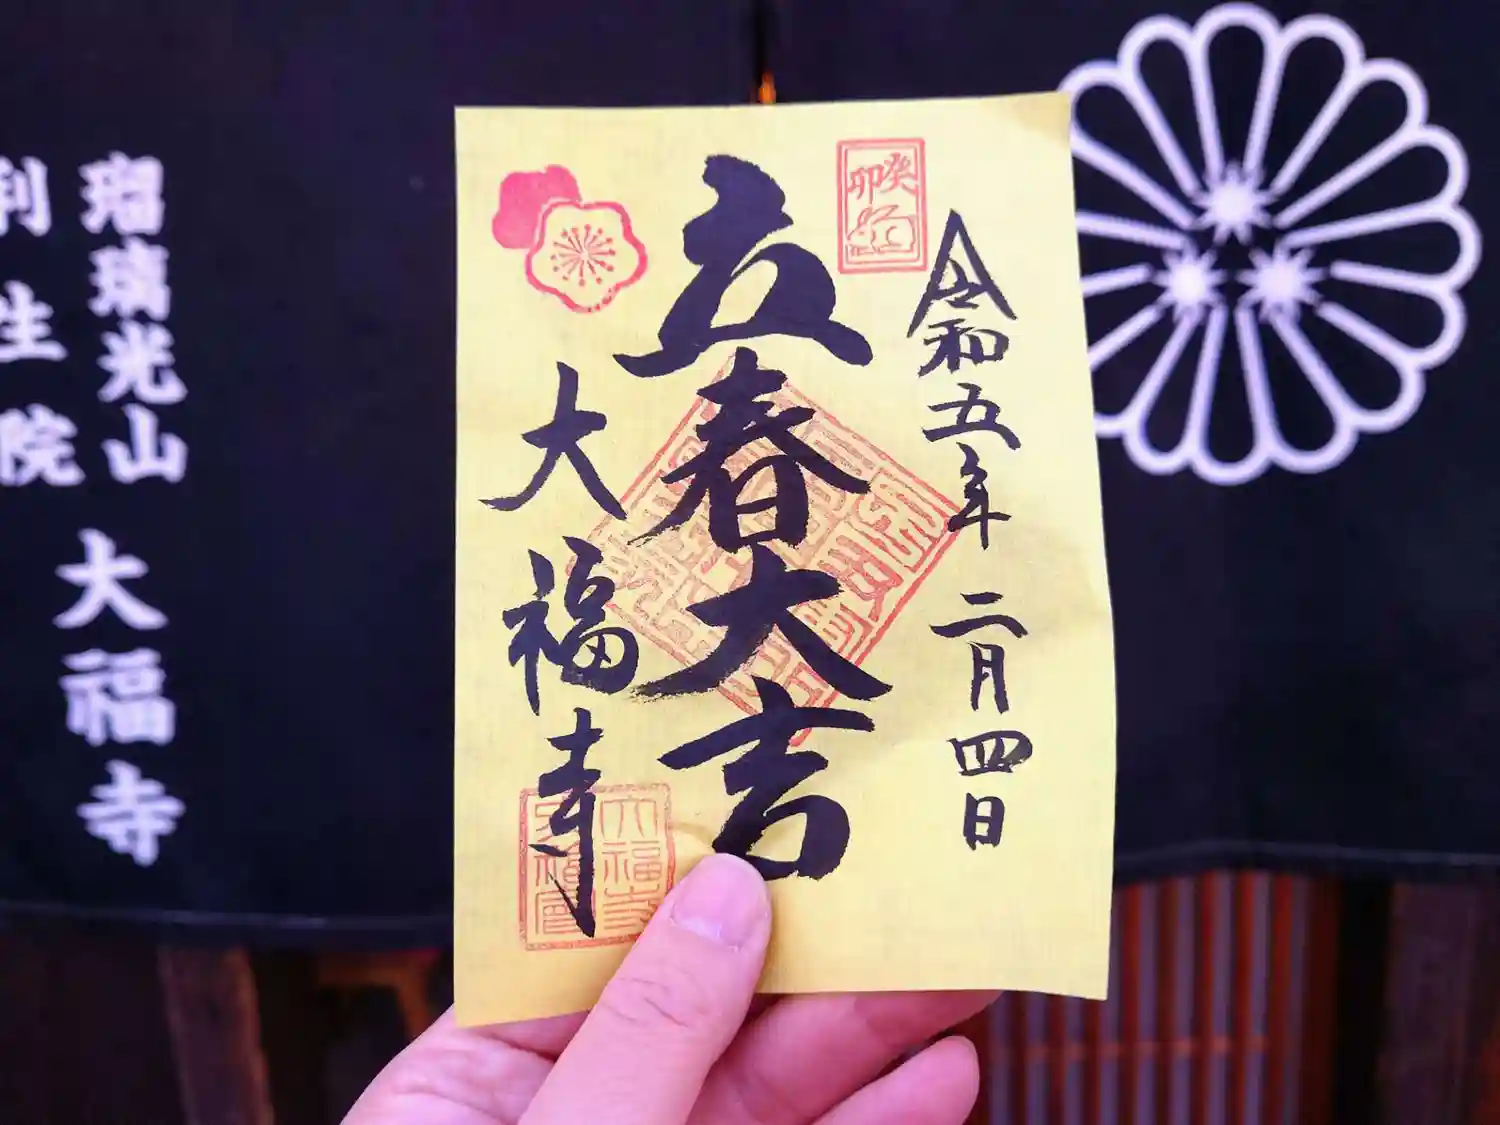 癸卯
令和五年 二月四日
立春大吉
大福寺
大福寺
瑠璃光山
利生院
大福寺